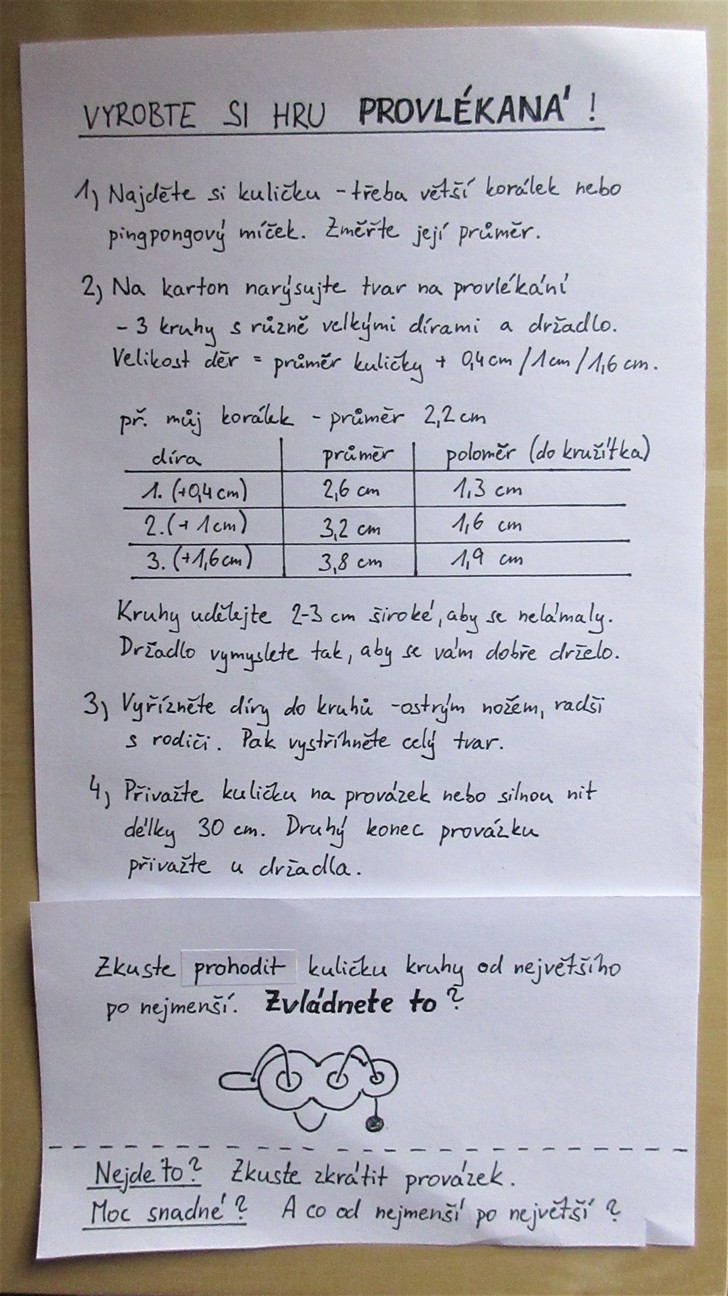 VYROBTE SI HRU PROVLÉKANÁ !
1) Najděte si kuličku - třeba větší korálek nebo
pingpongový míček. Změřte její průměr.
2) Na karton narýsujte tvar na provlékání
- 3 kruhy s různě velkými dírami a držadlo.
Velikost děr = průměr kuličky + 0,4 cm / 1 cm / 1,6 cm.
př. můj korálek - průměr 2,2 cm
díra průměr poloměr (do kružítka)
1. (+0,4 cm) 2,6 cm 1,3 cm
2. (+ 1cm) 3,2 cm 1,6 cm
3. (+1,6 cm) 3,8 cm 1,9 cm
Kruhy udělejte 2-3 cm široké, aby se nelámaly.
Držadlo vymyslete tak, aby se vám dobře drželo.
3) Vyřízněte díry do kruhů - ostrým nožem, radši
s rodiči. Pak vystřihněte celý tvar.
4) Přivažte kuličku na provázek nebo silnou nit
délky 30 cm. Druhý konec provázku
přivažte u držadla.
Zkuste prohodit kuličku kruhy od největšího
po nejmenší. Zvládnete to?
Nejde to? Zkuste zkrátit provázek.
Moc snadné? A co od nejmenší po největší?